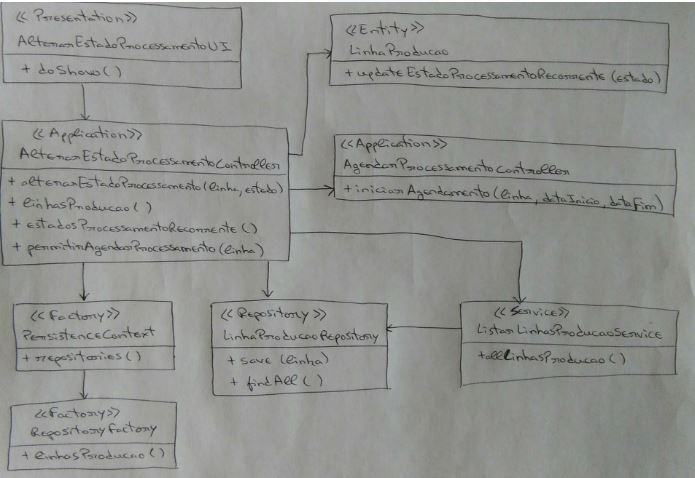 <<Presentation>>
AlterarEstadoProcessamentoUI
+ doShow()
<<Entity>>
LinhaProducao
+ updateEstadoProcessamentoRecorrente (estado)
<<Application>>
AlterarEstadoProcessamentoController
+ alterarEstadoProcessamento(linha, estado)
+ linhasProducao()
+ estadosProcessamentoRecorrente()
+ permitirAgendarProcessamento(linha)
<<Application>>
AgendarProcessamentoController
+ iniciarAgendamento(linha, dataInicio, dataFim)
<<Factory>>
PersistenceContext
+ repositories()
<<Repository>>
LinhaProducaoRepository
+ save (linha)
+ findAll()
<<Service>>
ListarLinhasProducaoService
+allLinhasProducao()
<<Factory>>
RepositoryFactory
+ linhasProducao()